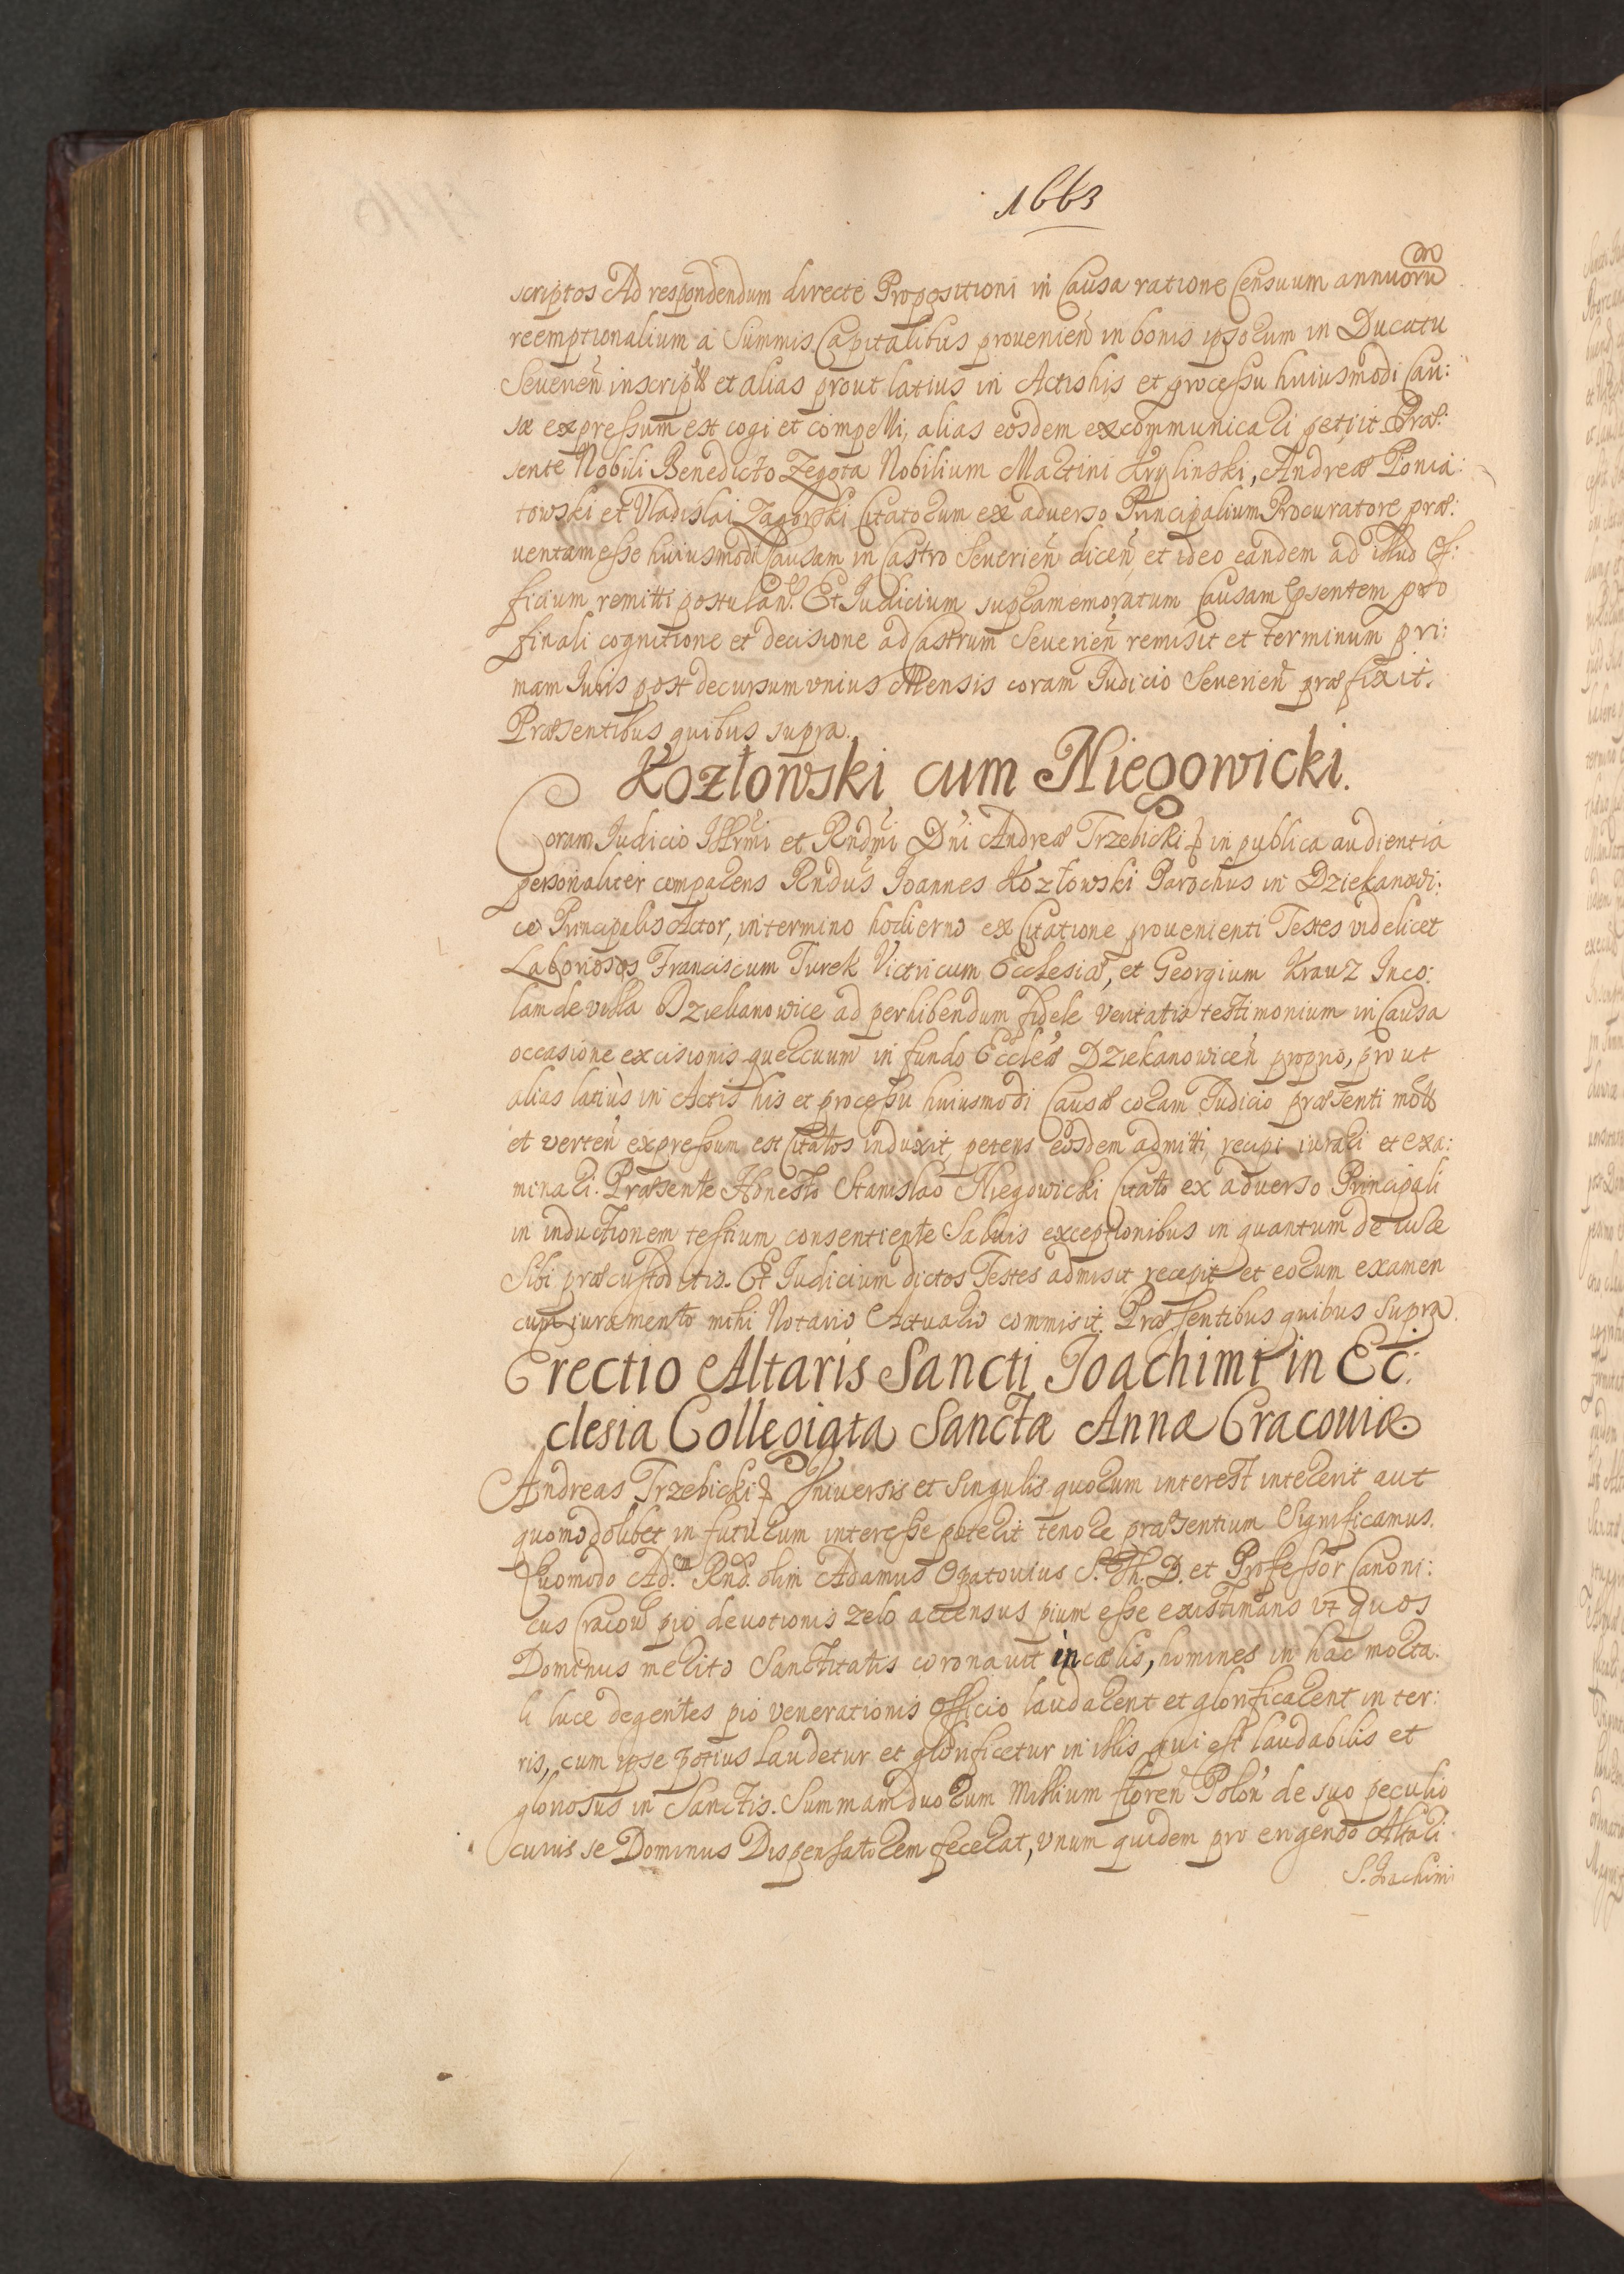 1663
scriptos Ad respondendum directe Propositioni in Causa ratione Censuum annuoru
reemptionalium a Summis Capitalibus provenien in bonis ipsorum in Ducatu
Severien inscrip et alias prout latius in Actis his et processu huiusmodi Cau:
sæ expressum est cogi et compelli, alias eosdem excommunicari petiit Præ:
sente Nobili Benedicto Zegota Nobilium Martini Krylinski, Andreæ Ponia:
towski et Vladislai Zagorski Citatorum ex adverso Principalium Procuratore præ:
ventam esse huiusmodi Causam in Castro Severien dicen, et ideo eandem ad illud Of:
ficium remitti postulan. Et Iudicium supramemoratum Causam psentem pro
finali cognitione et decisione ad Castrum Severien remisit et terminum pri:
mam Iuris post decursum unius Mensis coram Iudicio Severien præfixit.
Præsentibus quibus supra.
Kozłowski cum Niegowicki.
Coram Iudicio Illrmi et Rndmi Dni Andreæ Trzebicki in publica audientia
personaliter comparens Rndus Joannes Kozłowski Parochus in Dziekanowi:
ce Principalis Actor, in termino hodierno ex Citatione provenienti Testes videlicet
Laboriosos Franciscum Turek Victricum Ecclesiæ, et Georgium Krauz Inco:
lam de villa Dziekanowice ad perhibendum fidele veritatis testimonium in Causa
occasione excisionis quercuum in fundo Eccleæ Dziekanowicen proprio, prout
alias latius in Actis his et processu huiusmodi Causæ coram Iudicio præsenti mot
et verten expressum est Citatos induxit, petens eosdem admitti, recipi iurari et exa:
minari. Præsente Honesto Stanislao Niegowicki Citato ex adverso Principali
in inductionem testium consentiente Salvis exceptionibus in quantum de iure
Sibi præcustoditis. Et Iudicium dictos Testes admisit recepit et eorum examen
cum iuramento mihi Notario Actuario commisit. Præsentibus quibus supra.
Erectio Altaris Sancti Joachimi in Ec:
clesia Collegiata Sanctæ Annæ Cracoviæ.
Andreas Trzebicki Universis et Singulis quorum interest intererit aut
quomodolibet in futurum interesse poterit tenore præsentium Significamus.
Quomodo Ad. Rnd. olim Adamus Opatovius S. Th. D. et Professor Canoni:
cus Cracov pio devotionis zelo accensus pium esse existimans ut quos
Dominus merito Sanctitatis coronavit in cælis, homines in hac morta:
li luce degentes pio venerationis officio laudarent et glorificarent in ter:
ris, cum ipse potius laudetur et glorificetur in illis qui est laudabilis et
gloriosus in Sanctis. Summam duorum Millium floren Polon de suo peculio
cuius se Dominus Dispensatorem fecerat, unum quidem pro erigendo Altari
S. Joachimi